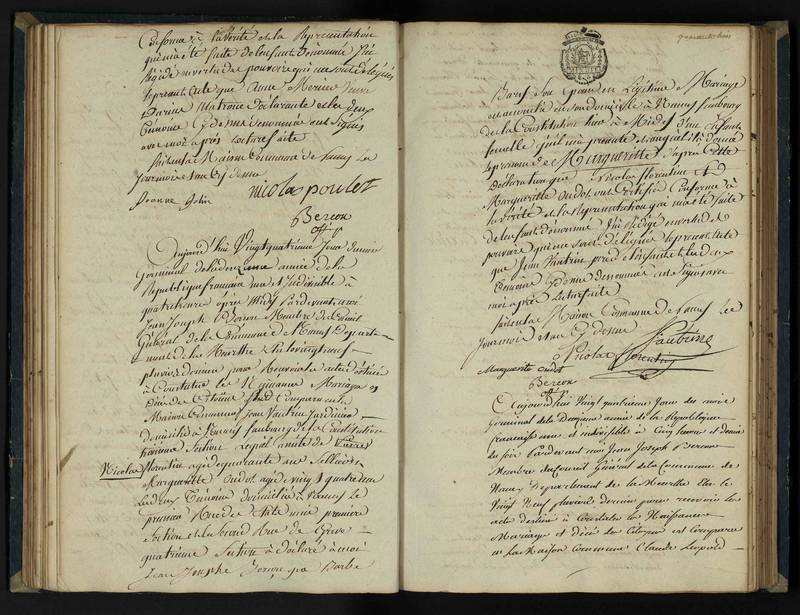 Conforme à la Vérité et à la Représentation
qui m'a été faite de l'enfant dénommé J'ai
Rédigé en vertu des pouvoirs qui me sont délégués
le présent acte que Anne
Matrone Déclarante et les deux
témoins cy dessus dénommés ont signés
avec moi après Lecture faite
fait en la Maison Commune de Nancy les
Jour mois et an cy dessus
Jeanne Nicolas poulet
Berson
off. p.
Aujourd'hui Vingt quatrième Jour du mois
Germinal de la deuxième année de la
République française une et Indivisible à
quatre heures après Midy Pardevant moi
Jean Joseph Berson Membre du Conseil
Général de la Commune de Nancy Départe-
ment de la Meurthe Élu le vingt neuf
pluviôse dernier pour Recevoir les actes destinés
à Constater les Naissances Mariages et
Décès des Citoyens Est Comparu en la
Maison Commune Jean Vautrin Jardinier
domicilié à Nancy faubourg de la Constitution
huitième Section Lequel assisté de
Nicolas florentin agé de quarante ans Sellier
Marguerite Oudot agée de vingt quatre ans
Les deux témoins domiciliés à Nancy le
premier Rue de première
Section et la Seconde Rue de Grève
quatrième Section à Déclaré à moi
Jean Joseph Berson que Barbe
quarante trois
Baruf Son Epouse en Légitime Mariage
est accouchée en son domicile à Nancy faubourg
de la Constitution hier à Midy d'un Enfant
femelle qu'il m'a présenté et auquel il a donné
le prénom de Marguerite D'après cette
Déclaration que Nicolas florentin et
Marguerite Oudot ont Certifiée Conforme à
la Vérité et la Représentation qui m'a été faite
de l'enfant dénommé J'ai Rédigé en vertu des
pouvoirs qui me sont délégués le présent acte
que Jean Vautrin père de l'enfant et les deux
témoins cy dessus dénommés ont Signé avec
moi après Lecture faite
fait en la Maison Commune de Nancy les
Jour mois et an cy dessus
Vautrin
Nicolas florentin
Marguerite oudot
Berson
off. p.
Aujourd'hui Vingt quatrième Jour du mois
Germinal de la Deuxième année de la République
française une et indivisible à Cinq heures et demie
du soir Pardevant moi Jean Joseph Berson
Membre du Conseil Général de la Commune de
Nancy Département de la Meurthe Élu le
Vingt Neuf pluviôse dernier pour recevoir les
acte destiné à Constater les Naissances
Mariages et décès des Citoyens est Comparu
en La Maison Commune Claude Léopold